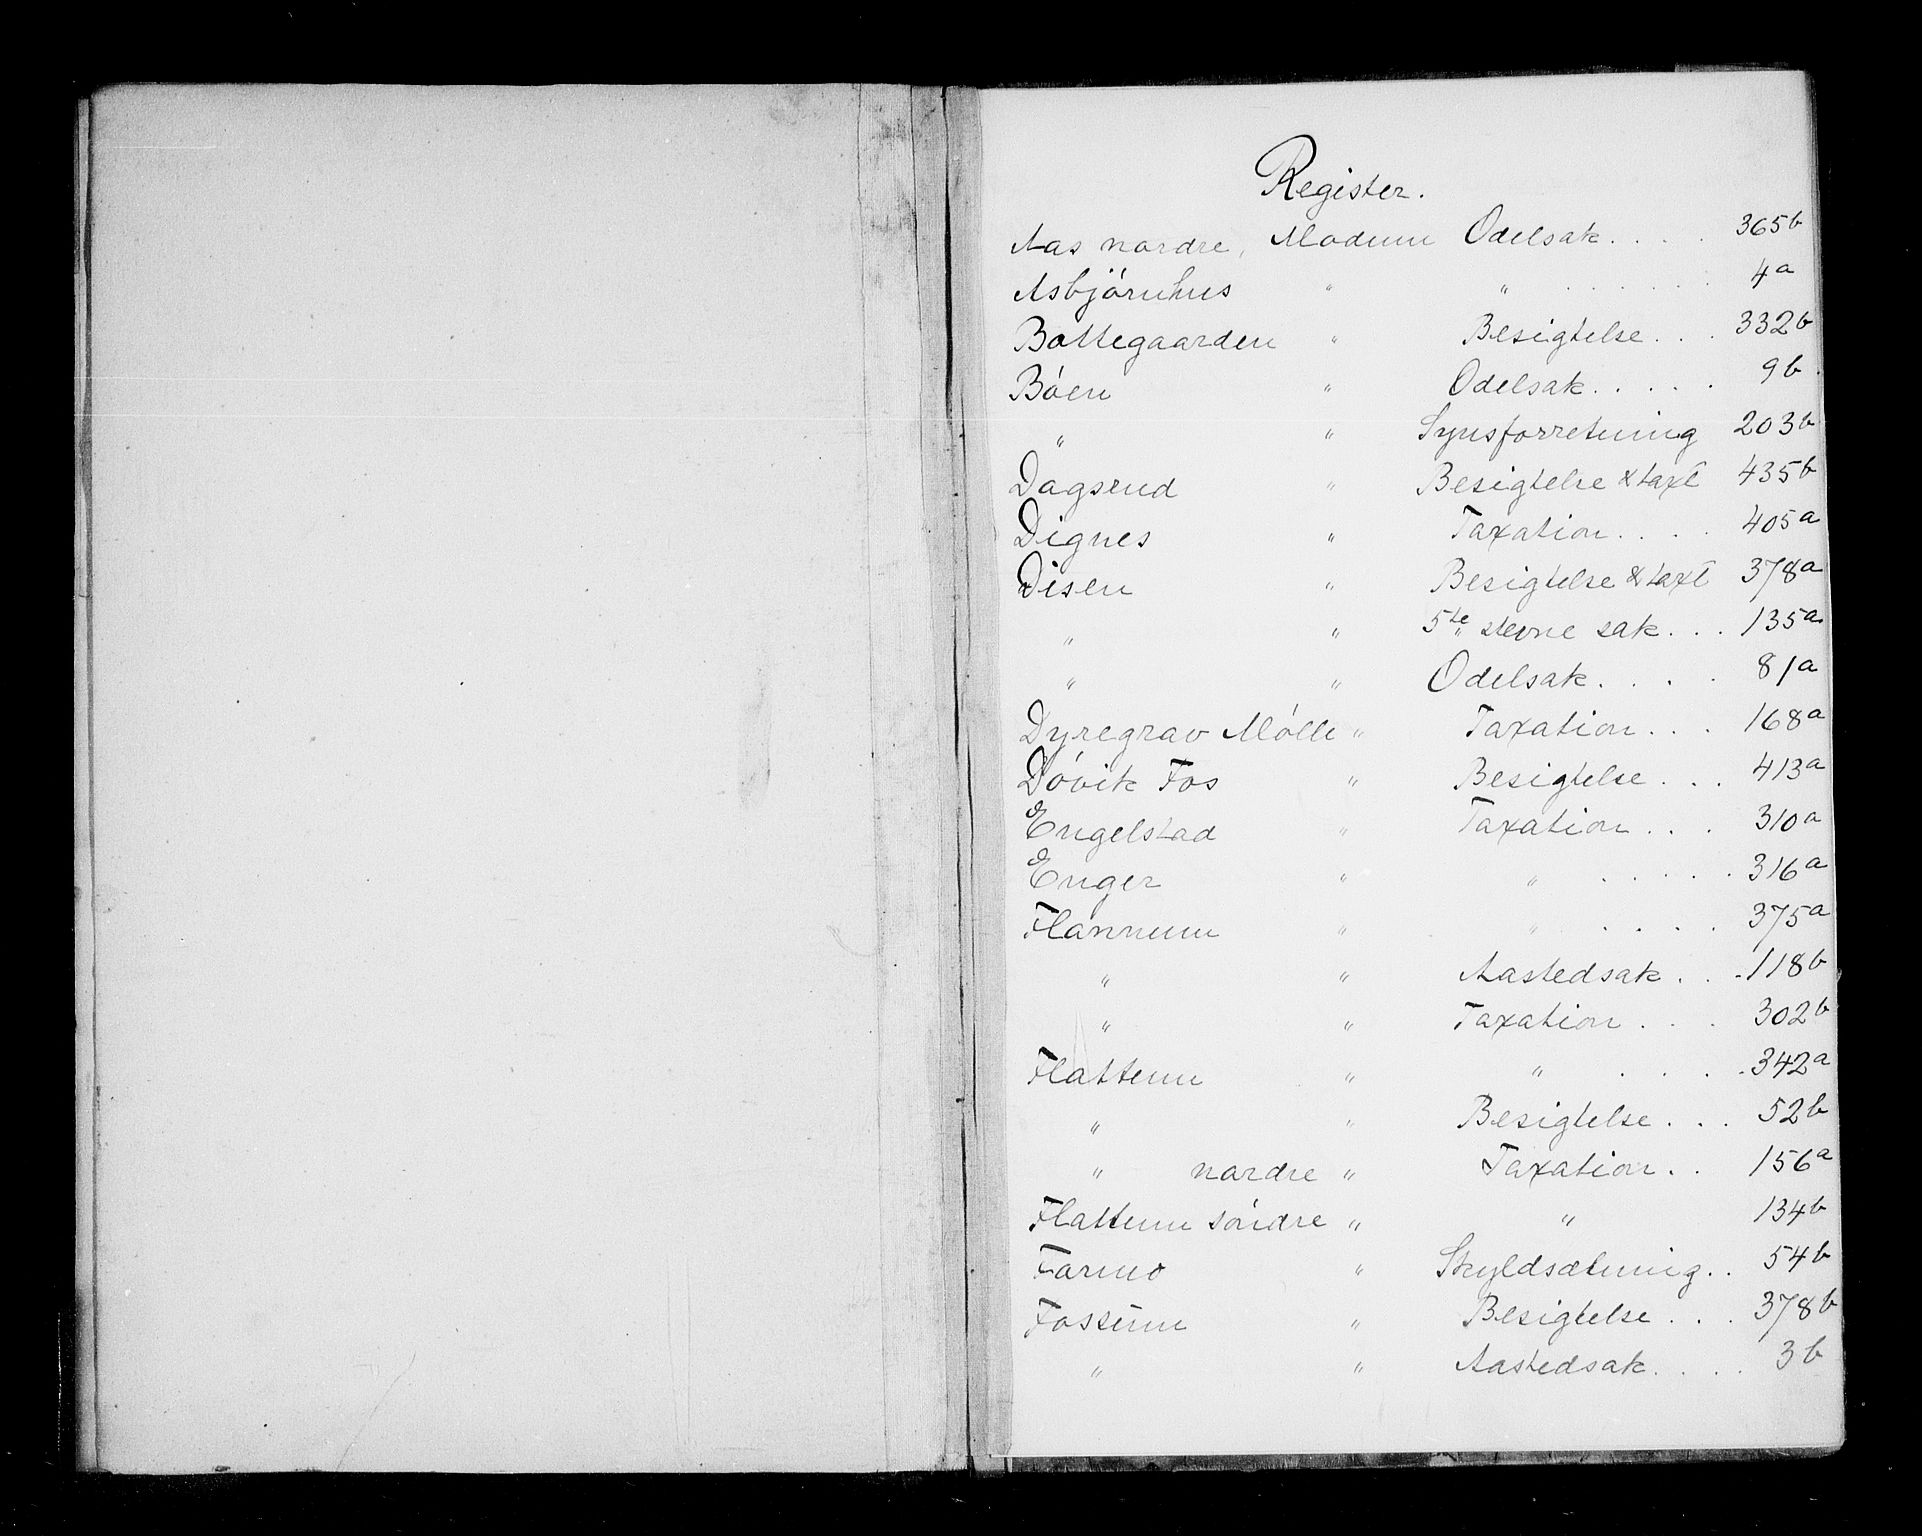 Register.
Aas nordre, Modum Odelsak. . . . 365b
Asbjörnhus " " . . . . . . . 4a
Bottegaarden " Besigtelse. . . 332b
Böen " Odelsak. . . . . 9b
" " Synsforretning 203b
Dagsrud " Besigtelse & taxt 435b
Dignes " Taxation. . . . 405a
Disen " Besigtelse & taxt 378a
" " 5te stevne sak. . . 135a
" " Odelsak. . . . 81a
Dyregrav Mölle " Taxation. . . 168a
Dövik Fos " Besigtelse. . . 413a
Engelstad " Taxation. . . 310a
Enger " " . . . . . 316a
Flannum " " . . . . 375a
" " Aastedsak. . . 118b
" " Taxation. . . 302b
Flattum " " . . . . 342a
" " Besigtelse. . . 52b
" nordre " Taxation. . 156a
Flattum söndre " " 134b
Formo " Skyldsætning. . 54b
Fossum " Besigtelse. . . 378b
" " Aastedsak. . . . 3b